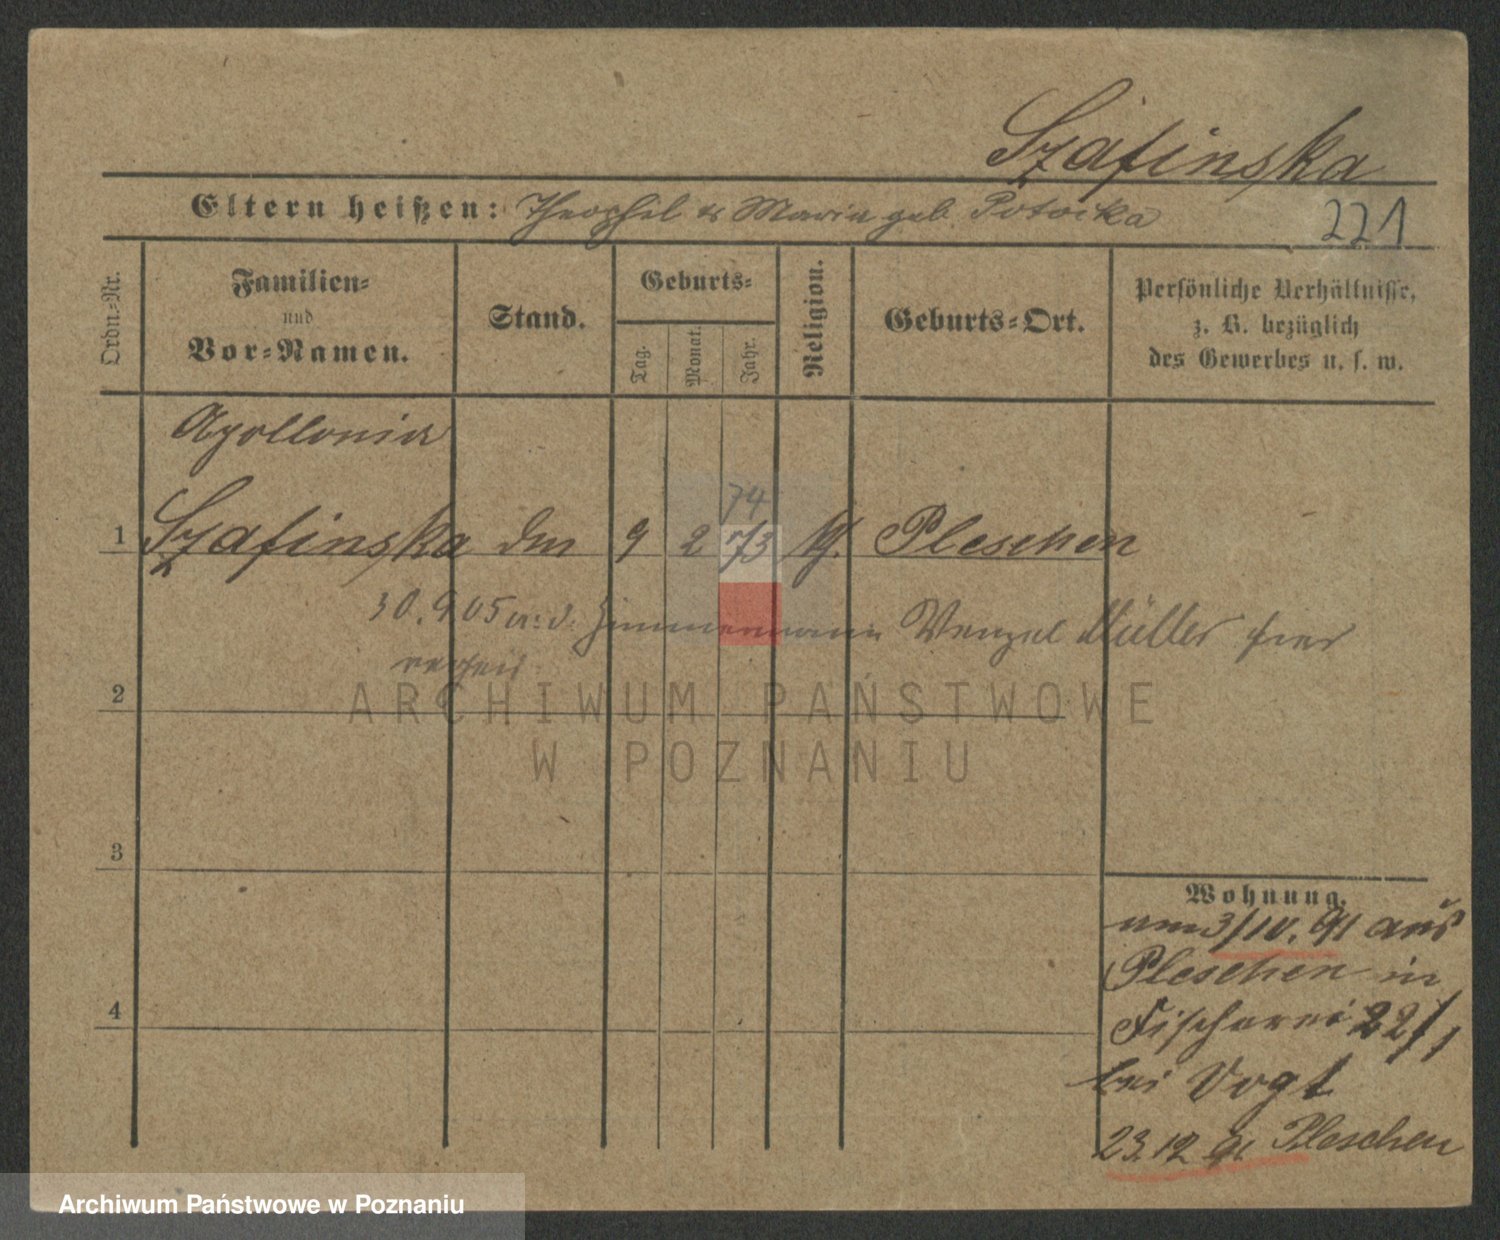 Szafinska
Eltern heißen: Theophil & Maria geb. Potocka
221
Ordn.-Nr.
Familien-
und
Vor-Namen.
Stand.
Geburts-
Tag.
Monat.
Jahr.
Religion.
Geburts-Ort.
Persönliche Verhältnisse,
z. B. bezüglich
des Gewerbes u. s. w.
Apollonia
74
1 Szafinska 9 2 73 Pleschen
30.9.05 Zimmermann Wenzel Müller hier
2
ARCHIWUM PAŃSTWOWE
W POZNANIU
3
4
Wohnung.
am 3/10. 91 aus
Pleschen in
Fischerei 22/1
bei Vogt
23.12 91 Pleschen
Archiwum Państwowe w Poznaniu